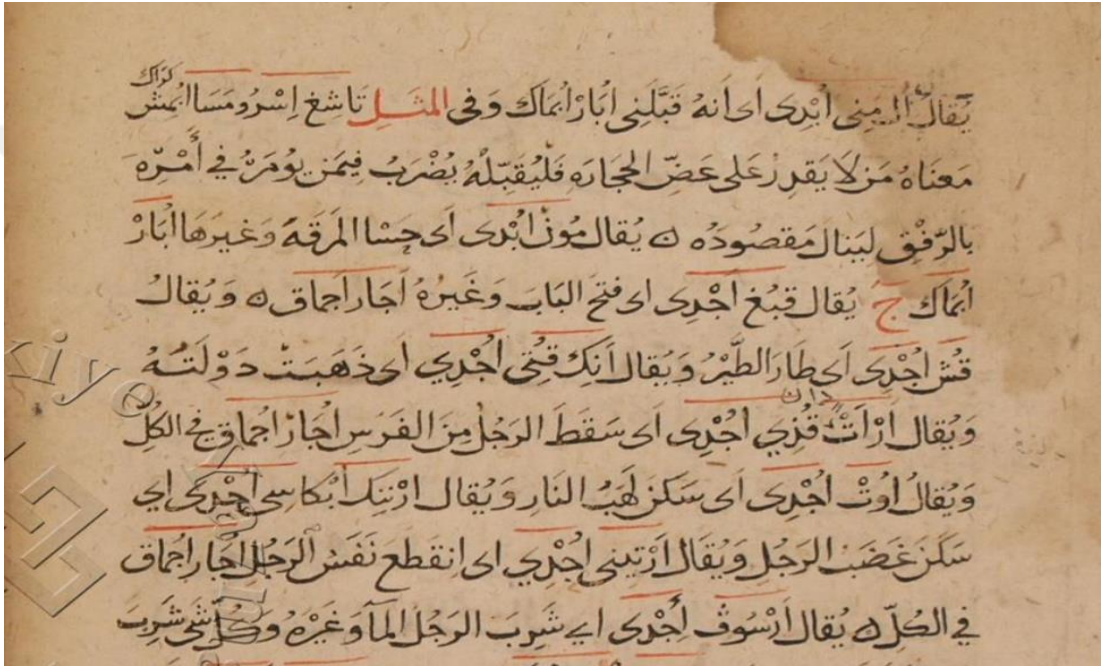 كراك
يُقالُ اُلْ مِنى اُبْدى اَى اَنهُ قَبَّلَنِى اُبَارْ اُبماك وَفى المثَلِ تَاشِغ اِسْرُومَسَا ابُمش
مَعنَاهُ مَن لَا يَقدِرُ عَلى عَضِّ الحِجَارَه فَليُقَبِّلْهُ يُضْرَبُ فِيمَن يُومَرُ في أَمْرِه
بالرِّفْقِ ليَنالَ مَقصُودَه ه يُقال مُون اُبْدى اَى حَسَا المَرقَه وَغيَرهَا اُبَارْ
اُبمَاك جَ يُقال قبُغ اَجْدِى اى فتَح البَابَ وَغَيرُهُ اَجَار اَجماق ه وَيُقالُ
قُش اُجْدِى اَى طَارَ الطَّيْرُ وَيُقال اَنِكْ قتِى اُجْدِي اَى ذَهَبَت دَوْلَتُهُ
وَيُقال اَرْ اَتْ قُذِي اُجْدِى اَى سَقَطَ الرَجُل مِنَ الفَرَسِ اُجَارْ اُجماق في الكُلِّ
وَيُقالُ اُوتْ اُجْدِى اَى سَكَنَ لَهَبُ النَارِ وَيُقال ارْنِنك اُبْكاسِى اُجْدِى اى
سَكَنَ غَضَبُ الرَجُلِ وَيُقَال اَرْ تينِى اُجْدِي اى انِقطعَ نَفَسُ الرَجُلِ اُجَار اُجماق
في الكلِّ ه يُقال اَرْ سُوڤ اِجْدِى اى شَرِبَ الرَجُل المآَ وَغَيرَهُ وَكُلُّ شَى شَرِبَ